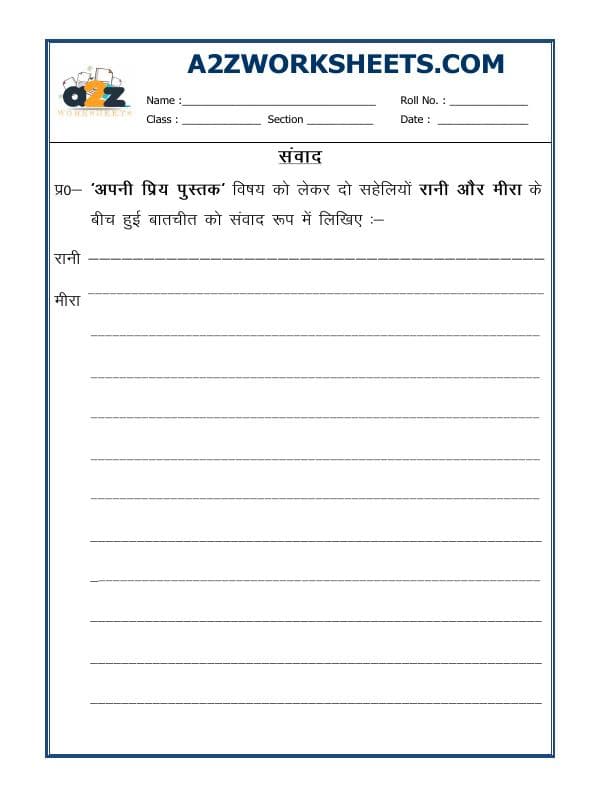 A2ZWORKSHEETS.COM
a2z
WORKSHEETS
Name :______________________________ Roll No. : ____________
Class : ____________ Section __________ Date : ______________
संवाद
प्र0– 'अपनी प्रिय पुस्तक' विषय को लेकर दो सहेलियों रानी और मीरा के
बीच हुई बातचीत को संवाद रूप में लिखिए :–
रानी
मीरा